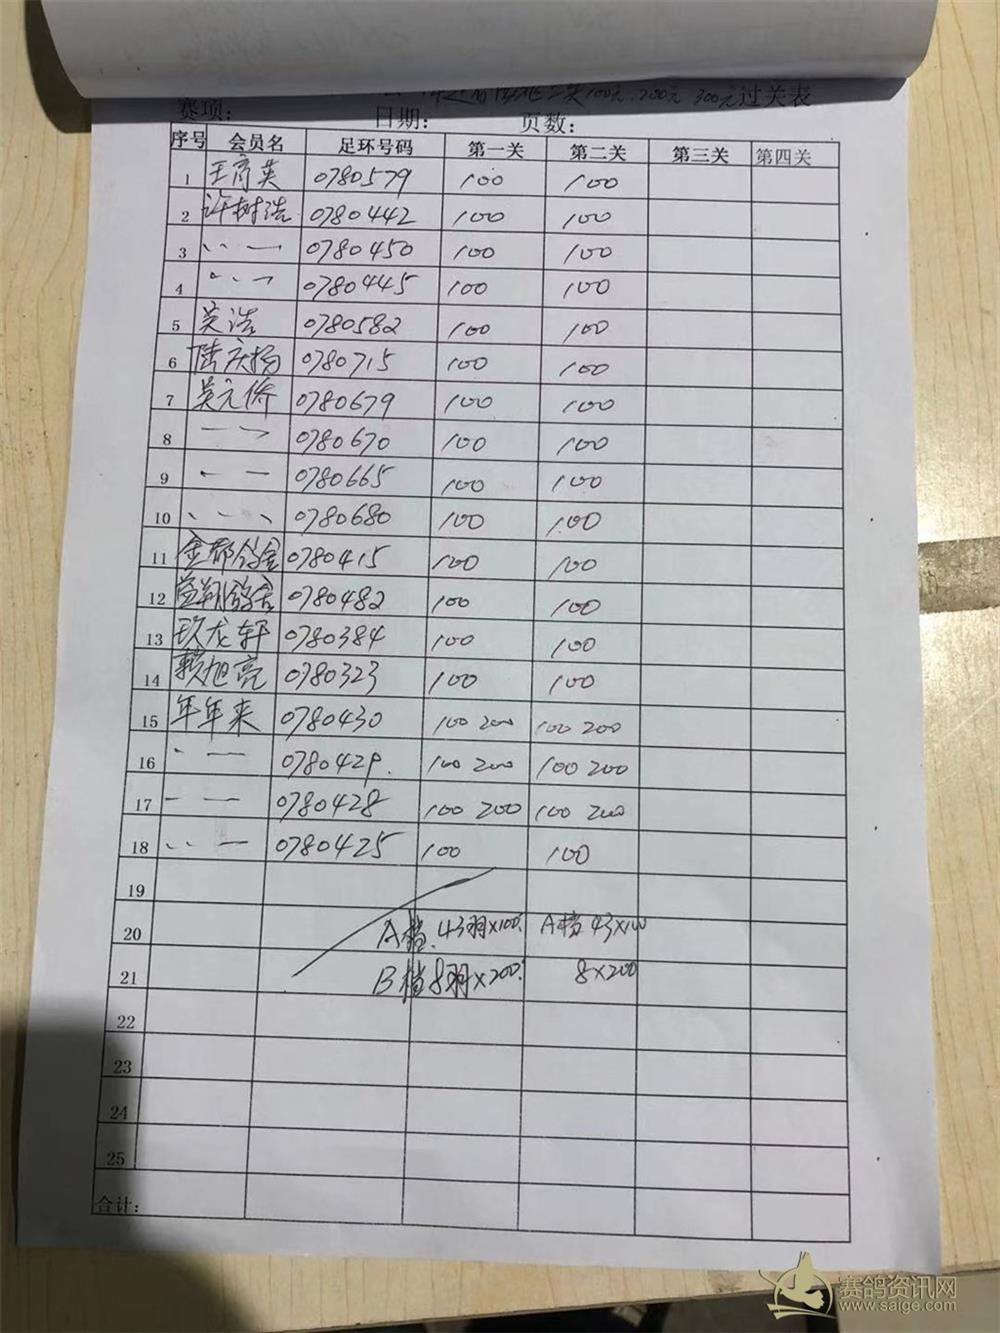 100元.200元 300元过关表
赛项: 日期: 页数:
序号 会员名 足环号码 第一关 第二关 第三关 第四关
1 王育英 0780579 100 100
2 许树浩 0780442 100 100
3 〃 — 0780450 100 100
4 〃 — 0780445 100 100
5 吴浩 0780582 100 100
6 陆庆扬 0780715 100 100
7 吴元侨 0780679 100 100
8 — — 0780670 100 100
9 — — 0780665 100 100
10 、、、、 0780680 100 100
11 金都鸽舍 0780415 100 100
12 益翔鸽舍 0780482 100 100
13 玖龙轩 0780384 100 100
14 赖旭亮 0780323 100 100
15 年年来 0780430 100 200 100 200
16 、 — 0780429. 100 200 100 200
17 — — 0780428 100 200 100 200
18 〃 — 0780425 100 100
19
20 A档.43羽×100. A档 43×100
21 B档8羽×200. 8×200
22
23
24
25
合计:
赛鸽资讯网
www.saige.com